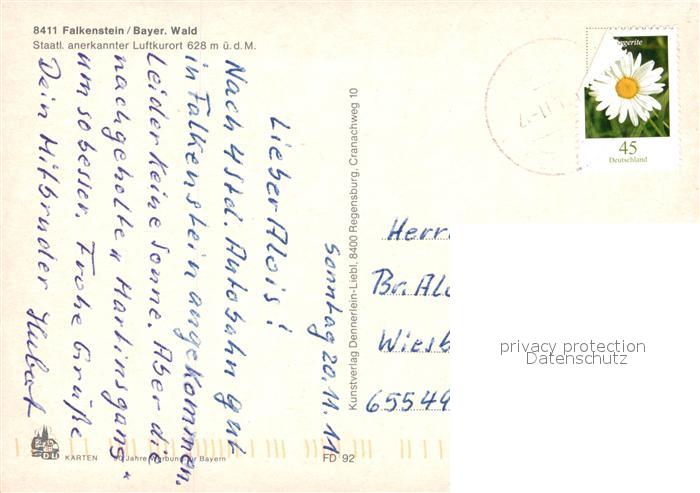 8411 Falkenstein / Bayer. Wald
Staatl. anerkannter Luftkurort 628 m ü. d. M.
Sonntag 20.11.11
Lieber Alois!
Nach 4 Std. Autobahn gut
in Falkenstein angekommen.
Leider keine Sonne. Aber die
nachgeholte „Martinsgans"
um so besser. Frohe Grüße
Dein Mitbruder
Kunstverlag Dennerlein-Liebl, 8400 Regensburg, Cranachweg 10
45
Deutschland
Herrn
Br. Alo
Wiesb
65549
privacy protection
Datenschutz
KARTEN
Jahre Werbung für Bayern
FD 92